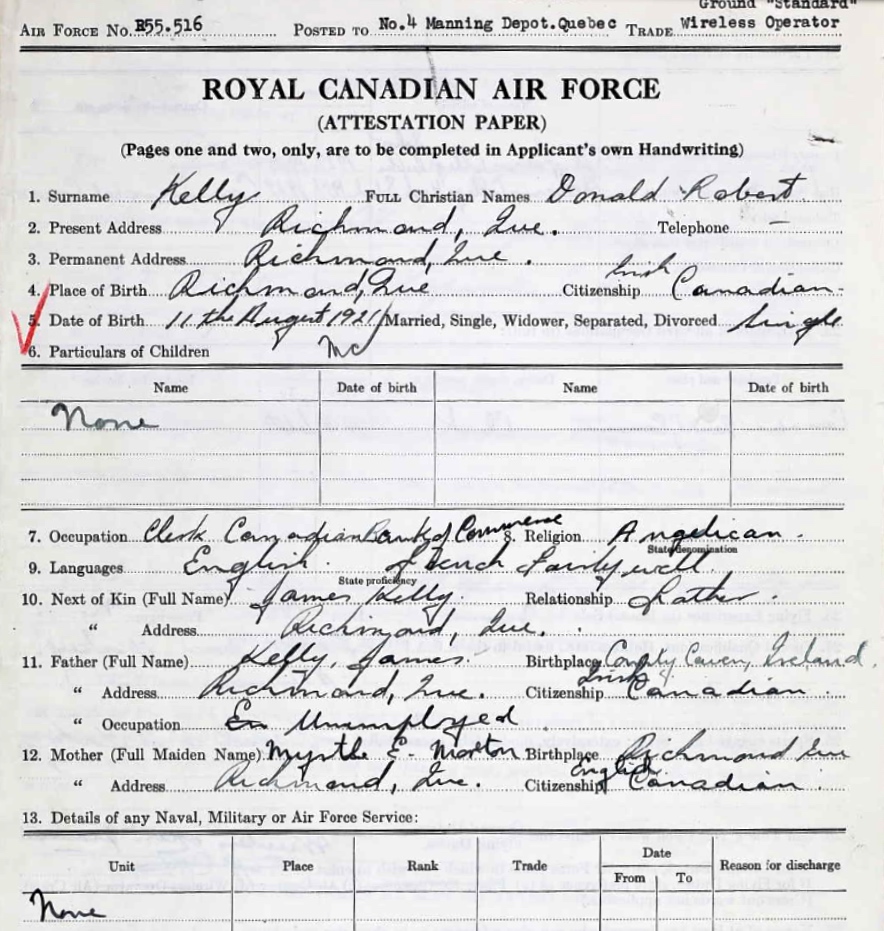 Ground "Standard"
AIR FORCE NO. R55.516 POSTED TO No.4 Manning Depot.Quebec TRADE Wireless Operator
ROYAL CANADIAN AIR FORCE
(ATTESTATION PAPER)
(Pages one and two, only, are to be completed in Applicant's own Handwriting)
1. Surname Kelly FULL Christian Names Donald Robert
2. Present Address Richmond, Que. Telephone –
3. Permanent Address Richmond, Que.
Irish
4. Place of Birth Richmond, Que Citizenship Canadian
5. Date of Birth 11 the August 1921 Married, Single, Widower, Separated, Divorced Single
6. Particulars of Children
Name Date of birth Name Date of birth
None
7. Occupation Clerk Canadian Bank of Commerce 8. Religion Anglican
State denomination
9. Languages English. French fairly well
State proficiency
10. Next of Kin (Full Name) James Kelly. Relationship Father.
" Address Richmond, Que.
11. Father (Full Name) Kelly, James. Birthplace County Caven, Ireland.
Irish
" Address Richmond, Que. Citizenship Canadian
" Occupation Unemployed
12. Mother (Full Maiden Name) Myrtle E. Morton Birthplace Richmond Que
English
" Address Richmond, Que. Citizenship Canadian
13. Details of any Naval, Military or Air Force Service:
Unit Place Rank Trade Date Reason for discharge
From To
None